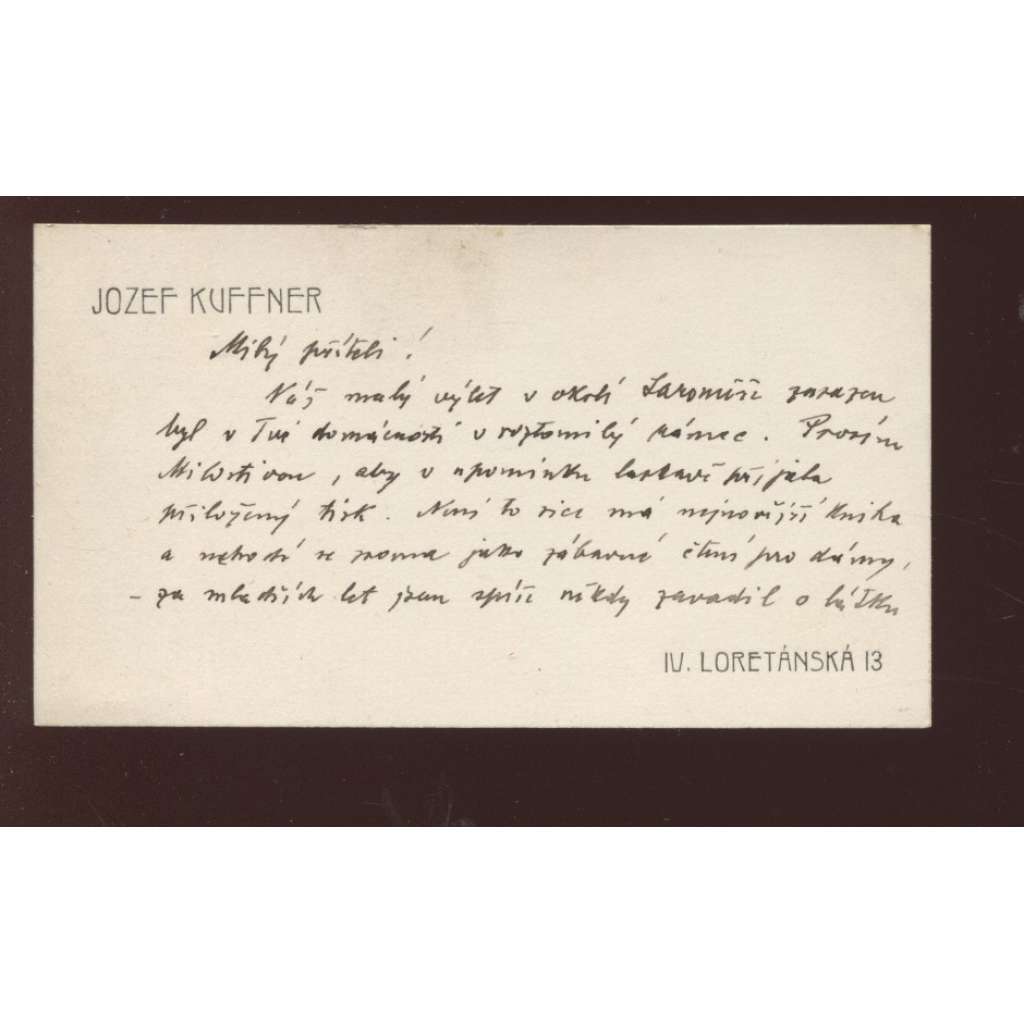 JOZEF KUFFNER
Milý příteli!
Náš malý výlet v okolí Jaroměře zarazen
byl v Tvé domácnosti v roztomilý rámec. Prosím
Milostivou, aby v upomínku laskavě přijala
přiložený tisk. Není to sice má nejnovější kniha
a nehodí se zrovna jako zábavné čtení pro dámy,
- za mladších let jsem spíše někdy zavadil o látku
IV. LORETÁNSKÁ 13